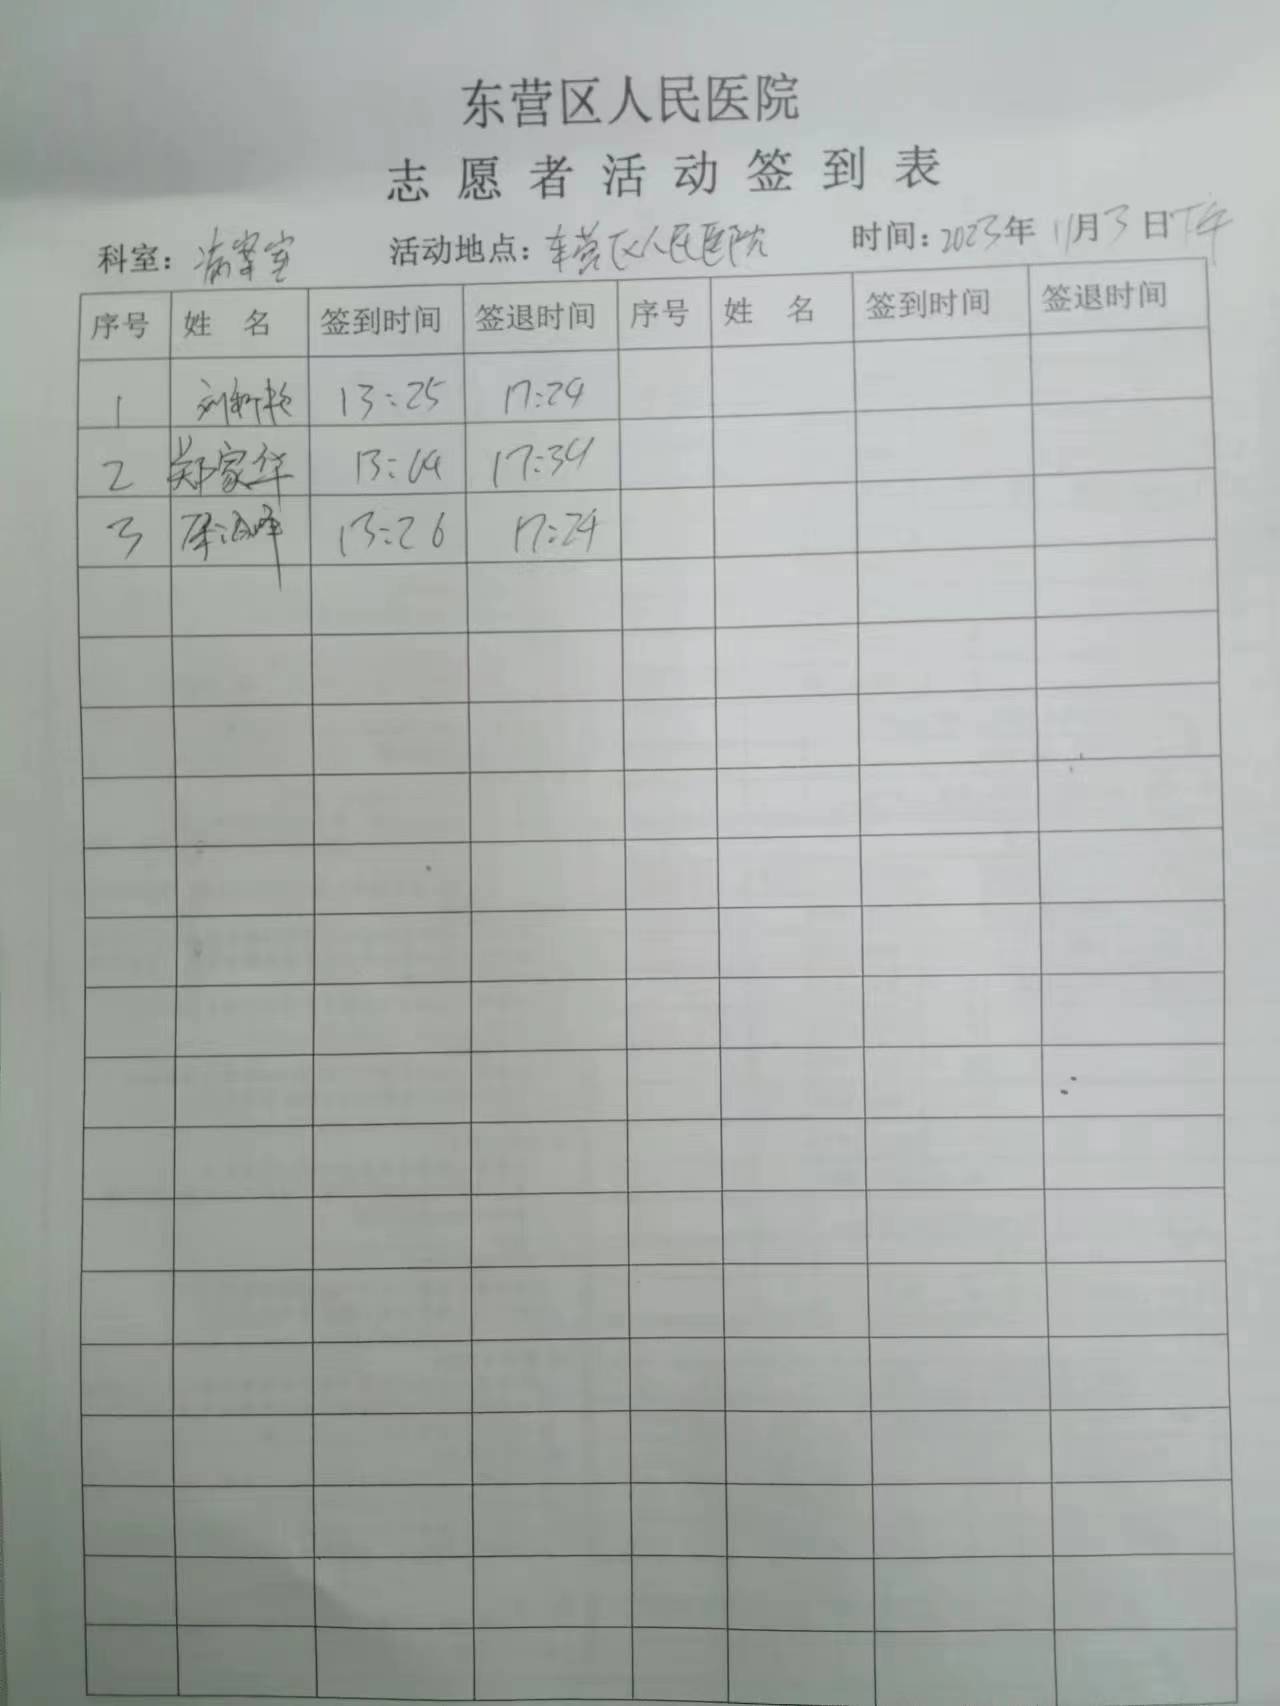 东营区人民医院
志愿者活动签到表
科室：病案室 活动地点：东营区人民医院 时间：2023年11月3日下午
序号 姓名 签到时间 签退时间 序号 姓名 签到时间 签退时间
1 刘 13:25 17:24
2 郑家华 13:14 17:34
3 海峰 13:26 17:24